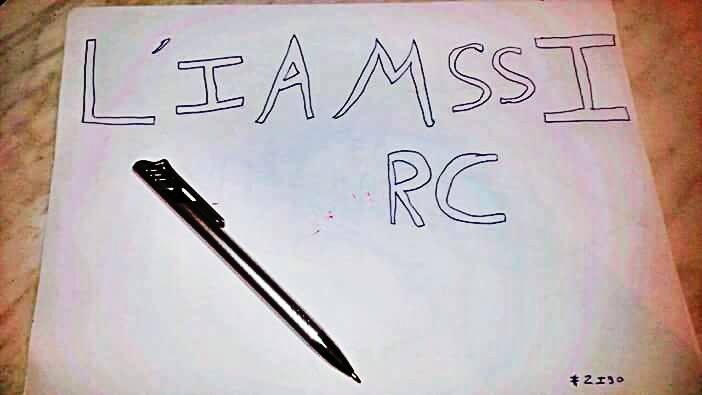 L'IAMSSI
RC
#2I90